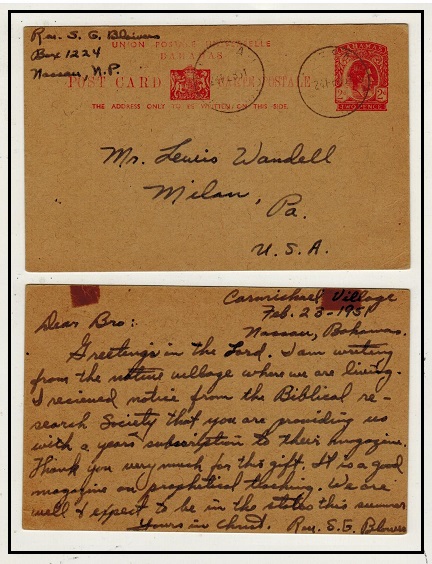 Rev. S. G. Blowers
Box 1224
Nassau, N.P.
UNION POSTALE UNIVERSELLE
BAHAMAS
POST CARD CARTE POSTALE
THE ADDRESS ONLY TO BE WRITTEN ON THIS SIDE.
BAHAMAS
2D 2D
TWO PENCE
Mr. Lewis Wandell
Milan,
Pa.
U.S.A.
Carmichael Village
Feb. 23-1951
Nassau, Bahamas.
Dear Bro:
Greetings in the Lord. I am writing
from the native village where we are living.
I recieved notice from the Biblical re-
search Society that you are providing us
with a years subscription to their magazine.
Thank you very much for this gift. It is a good
magazine on prophetical teaching. We are
well & expect to be in the states this summer
Yours in Christ. Rev. S.G. Blowers